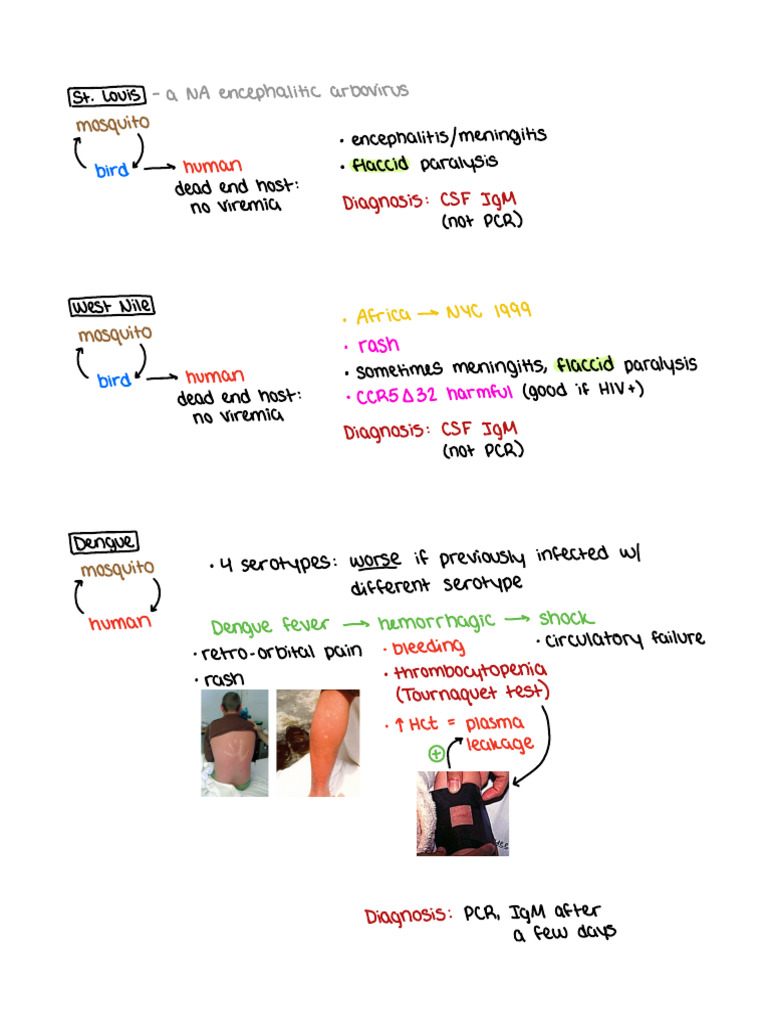 St. Louis - a NA encephalitic arbovirus
mosquito
bird → human
dead end host:
no viremia
• encephalitis/meningitis
• flaccid paralysis
Diagnosis: CSF IgM
(not PCR)
West Nile
mosquito
bird → human
dead end host:
no viremia
• Africa → NYC 1999
• rash
• sometimes meningitis, flaccid paralysis
• CCR5Δ32 harmful (good if HIV+)
Diagnosis: CSF IgM
(not PCR)
Dengue
mosquito
human
• 4 serotypes: worse if previously infected w/
different serotype
Dengue fever → hemorrhagic → shock
• retro-orbital pain
• rash
• bleeding
• thrombocytopenia
(Tournaquet test)
• ↑ Hct = plasma
leakage
+
• circulatory failure
Diagnosis: PCR, IgM after
a few days